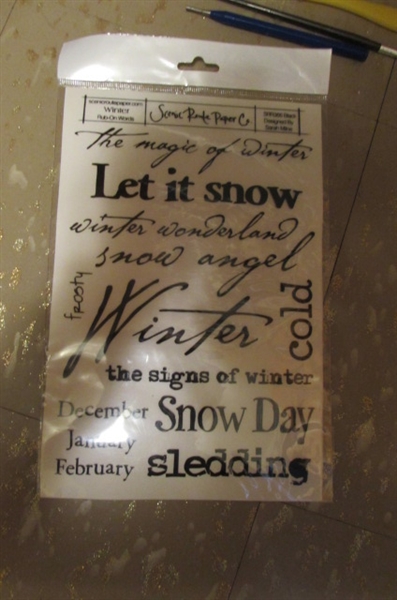 scenicroutepaper.com
Winter
Rub-On Words
Scenic Route Paper Co
Designed By
The magic of winter
Let it snow
winter wonderland
snow angel
frosty
Winter
cold
the signs of winter
December
Snow Day
January
February
sledding